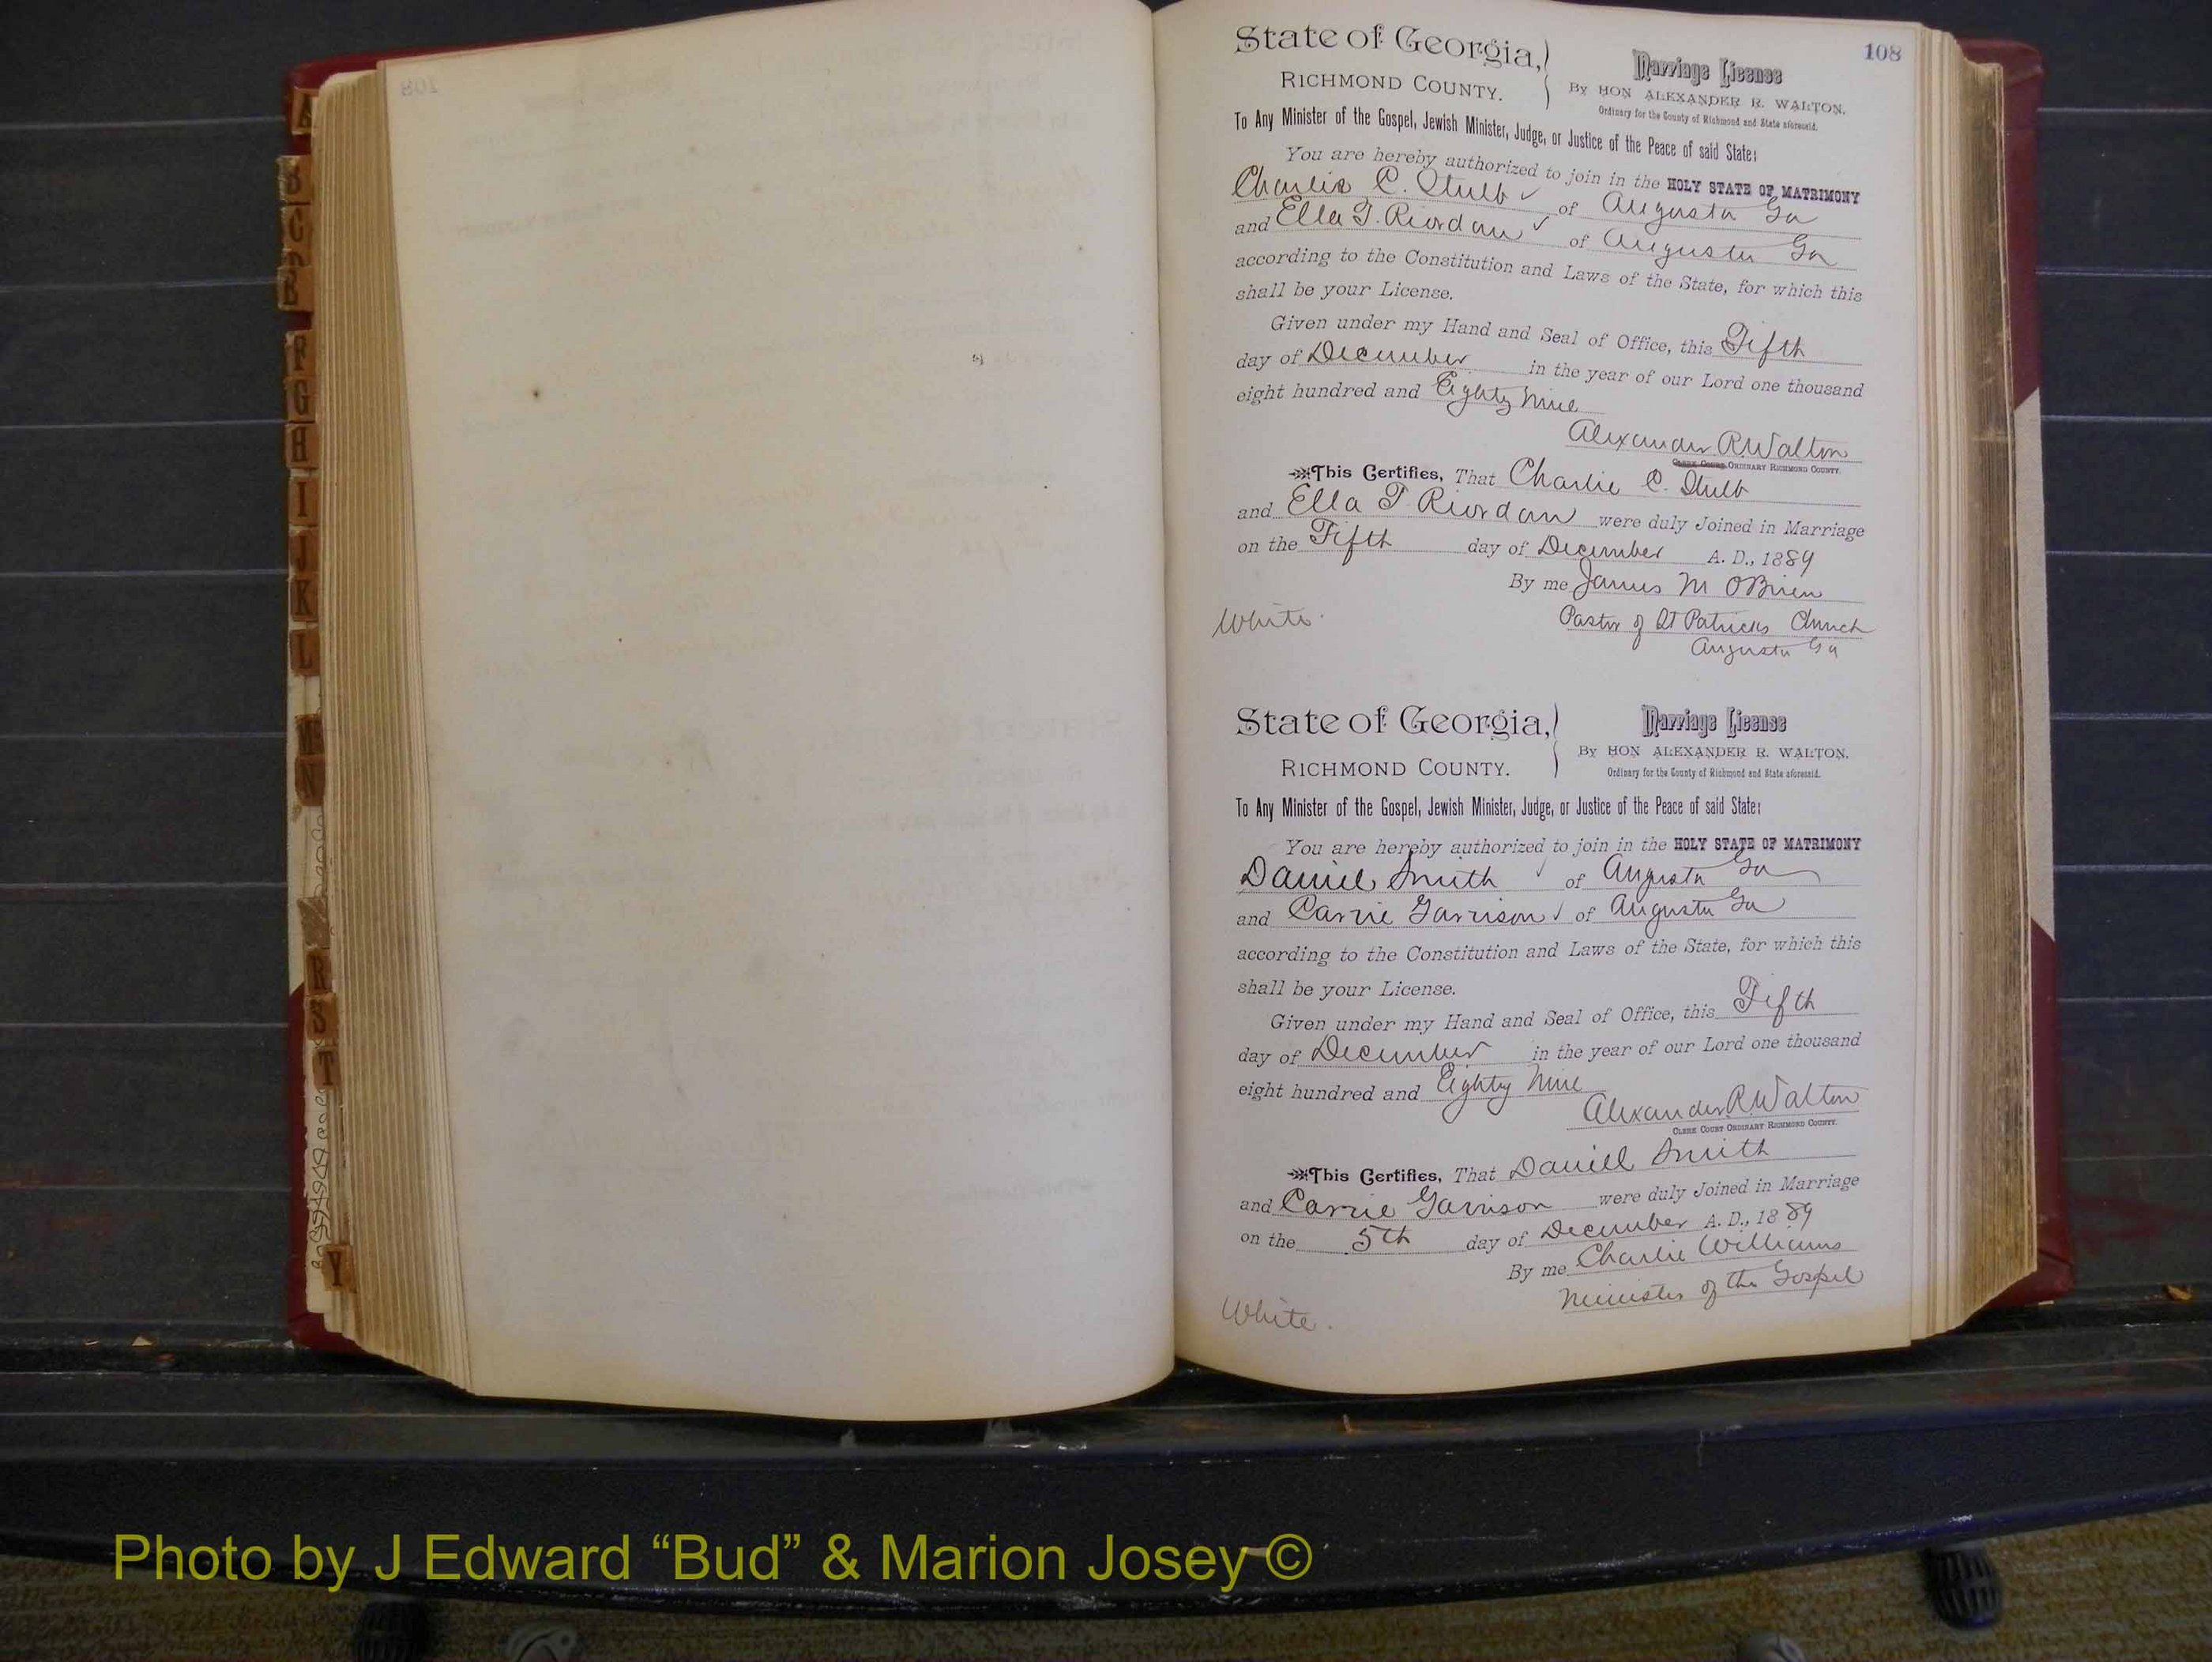 108
State of Georgia,
RICHMOND COUNTY.
Marriage License
By HON ALEXANDER R. WALTON,
Ordinary for the County of Richmond and State aforesaid.
To Any Minister of the Gospel, Jewish Minister, Judge, or Justice of the Peace of said State:
You are hereby authorized to join in the HOLY STATE OF MATRIMONY
Charlie C. Stulb of Augusta Ga
and Ella T. Riordan of Augusta Ga
according to the Constitution and Laws of the State, for which this
shall be your License.
Given under my Hand and Seal of Office, this Fifth
day of December in the year of our Lord one thousand
eight hundred and Eighty Nine
Alexander R Walton
CLERK COURT ORDINARY RICHMOND COUNTY.
This Certifies, That Charlie C. Stulb
and Ella T Riordan were duly Joined in Marriage
on the Fifth day of December A. D., 1889
By me James M OBrien
Pastor of St Patricks Church
Augusta Ga
White.
State of Georgia,
RICHMOND COUNTY.
Marriage License
By HON ALEXANDER R. WALTON.
Ordinary for the County of Richmond and State aforesaid.
To Any Minister of the Gospel, Jewish Minister, Judge, or Justice of the Peace of said State:
You are hereby authorized to join in the HOLY STATE OF MATRIMONY
Daniel Smith of Augusta Ga
and Carrie Garrison of Augusta Ga
according to the Constitution and Laws of the State, for which this
shall be your License.
Given under my Hand and Seal of Office, this Fifth
day of December in the year of our Lord one thousand
eight hundred and Eighty Nine
Alexander R Walton
CLERK COURT ORDINARY RICHMOND COUNTY.
This Certifies, That Daniel Smith
and Carrie Garrison were duly Joined in Marriage
on the 5th day of December A. D., 1889
By me Charlie Williams
Minister of the Gospel
White.
B
C
F
G
H
I
J
K
L
N
R
S
T
Y
Photo by J Edward “Bud” & Marion Josey ©